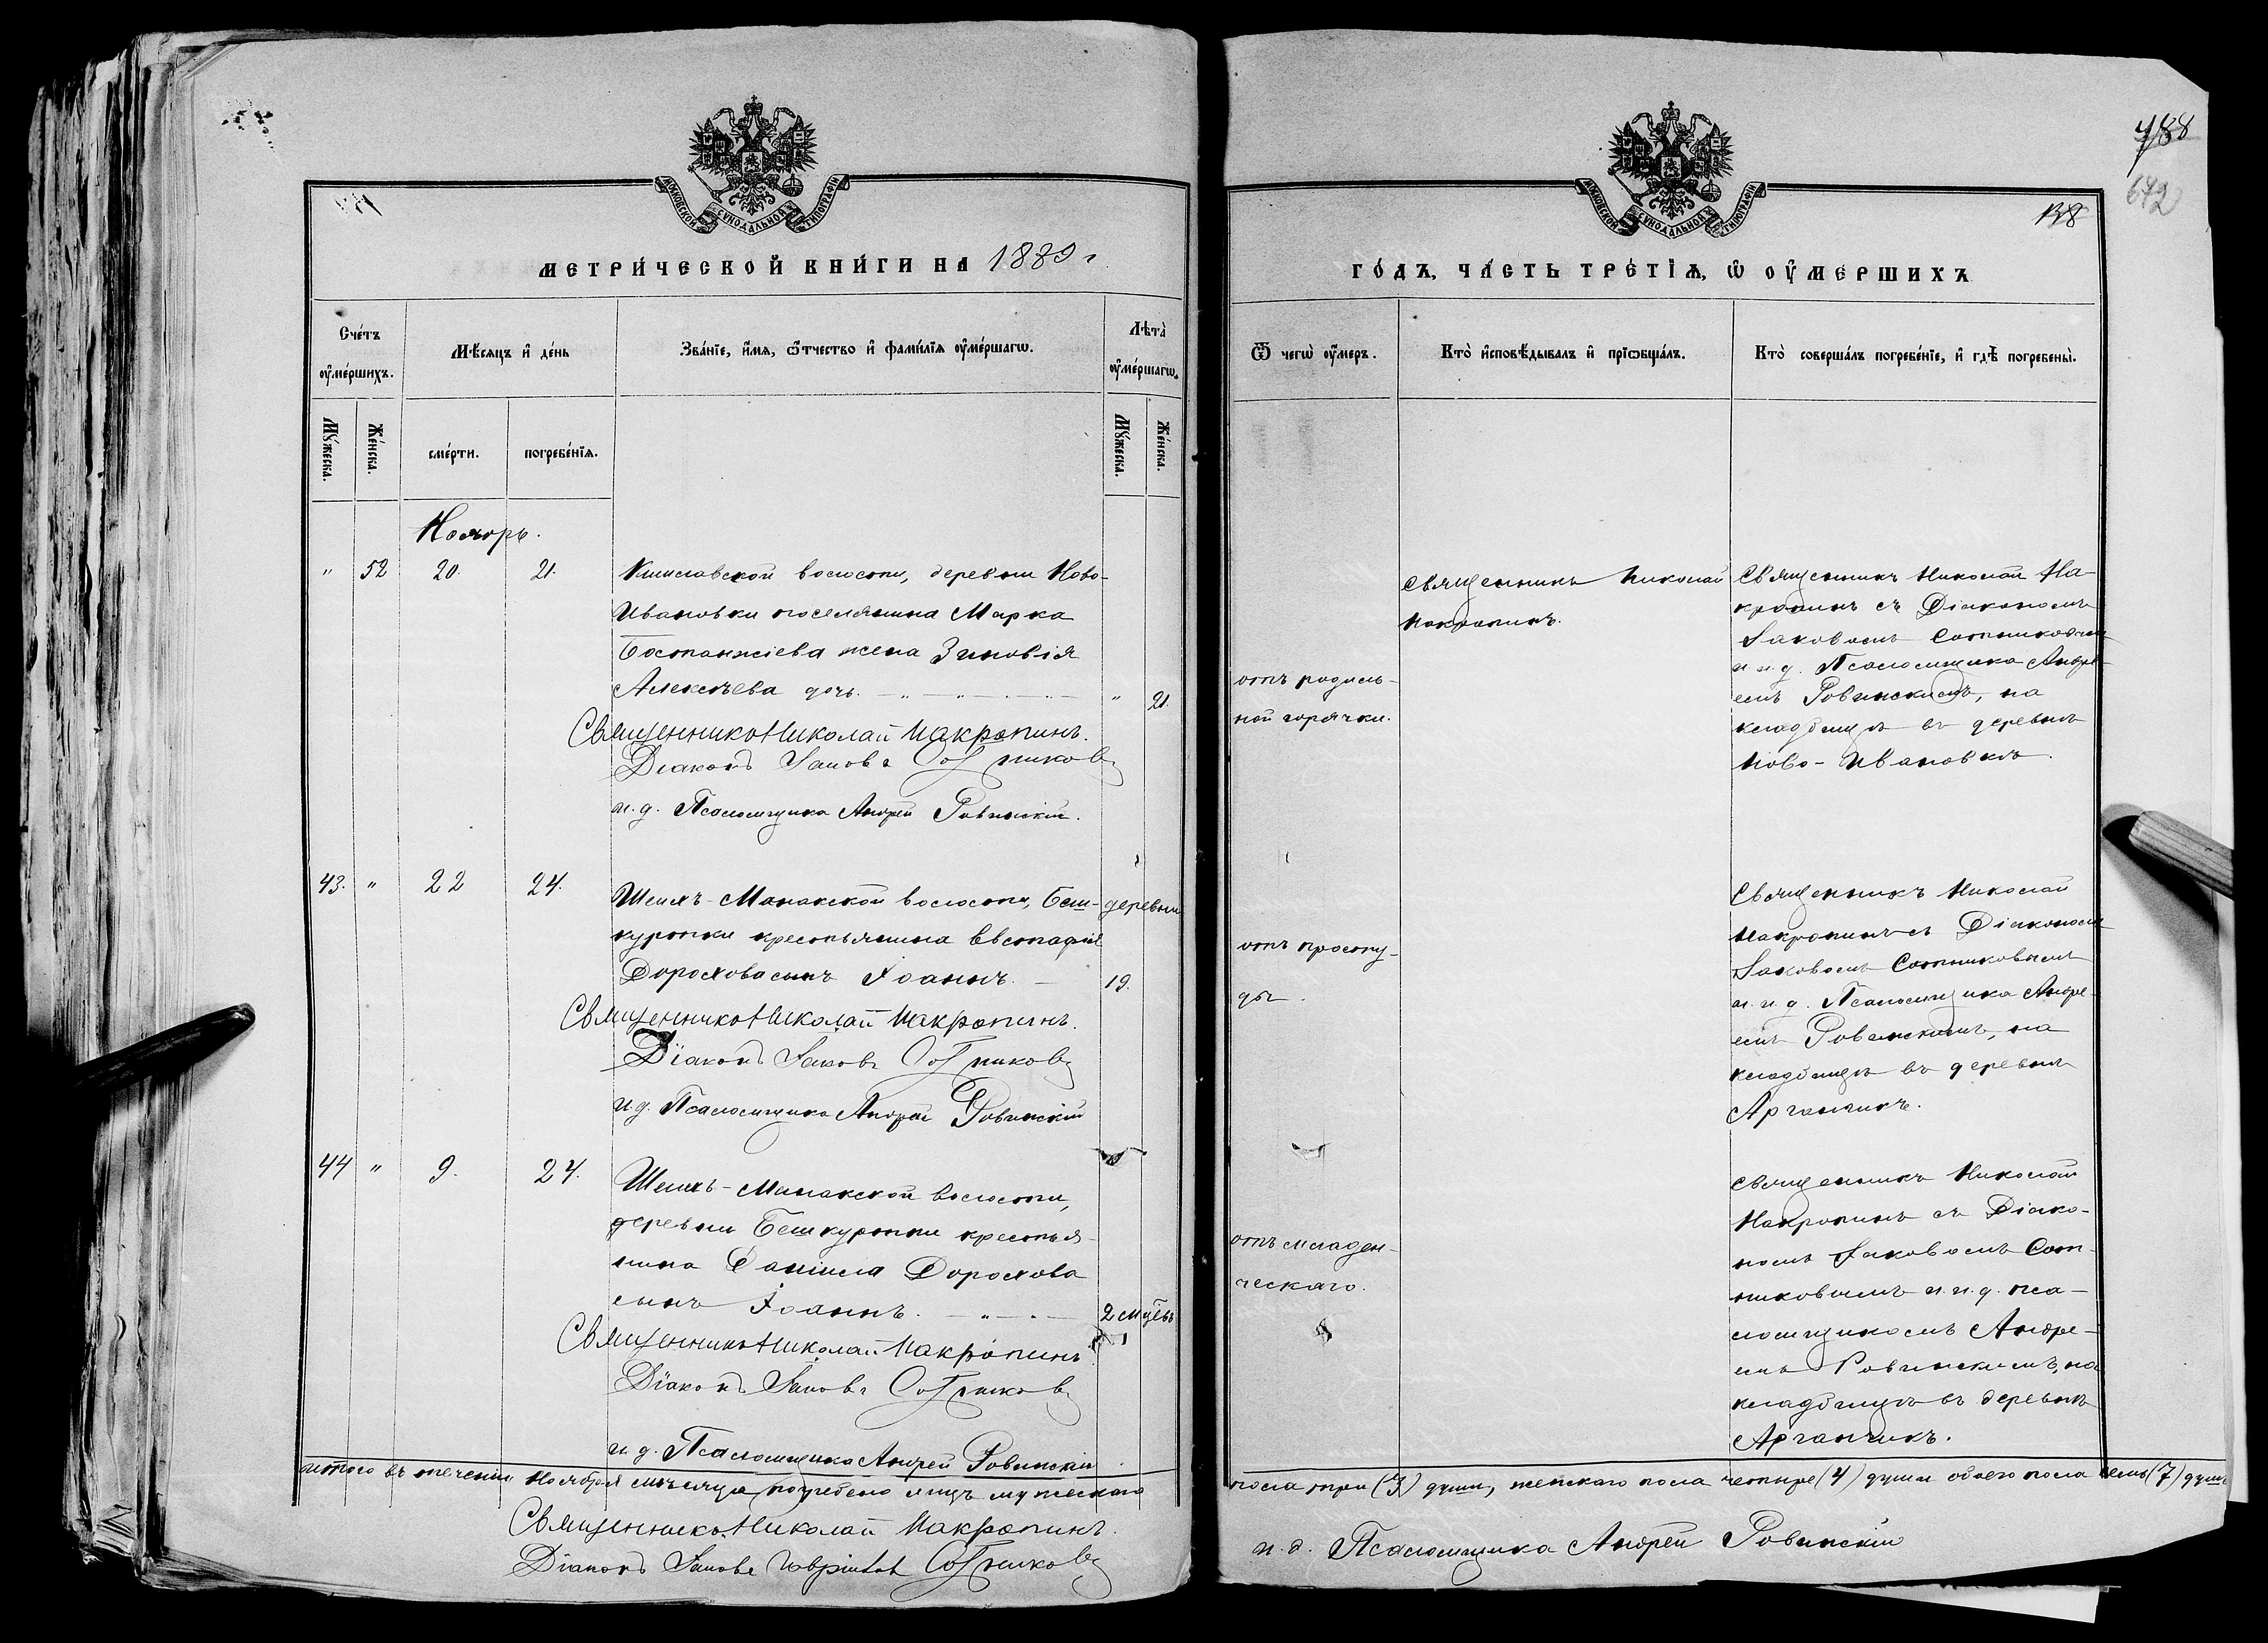 МОСКОВСКОЙ СѴНОДАЛЬНОЙ ТИПОГРАФІИ
МЕТРИ́ЧЕСКОЙ КНИ́ГИ НА 1889 г.
Сче́тъ ᲂу҆ме́ршихъ.
Мѣ́сяцъ и҆ де́нь
Зва́нїе, и҆́мя, ѻ҆́тчество и҆ фами́лїя ᲂу҆ме́ршагѡ.
Лѣта̀ ᲂу҆ме́ршагѡ.
Мꙋ́жеска.
Же́нска.
сме́рти.
погребе́нїя.
Мꙋ́жеска.
Же́нска.
Ноябрь.
" 52 20. 21. волости, деревни Ново-
Ивановки поселянина Марка
Бостанжіева жена Зиновія
Алексѣева дочь. " 21.
Священникъ Николай Макропинъ.
Діаконъ Іаковъ Сотниковъ
и. д. Псаломщика Андрей Ровинскій.
43. " 22 24. Шеихъ-Монакской волости, деревни Беш-
куртки крестьянина Евстафія
Дорохова сынъ Іоаннъ. 19.
Священникъ Николай Макропинъ.
Діаконъ Іаковъ Сотниковъ
и. д. Псаломщика Андрей Ровинскій
44 " 9. 24. Шеихъ-Монакской волости,
деревни Бешкуртки крестья-
нина Даніила Дорохова
сынъ Іоаннъ. 2 мцѣвъ
Священникъ Николай Макропинъ.
Діаконъ Іаковъ Сотниковъ
и. д. Псаломщика Андрей Ровинскій
Итого въ теченіи Ноября мѣсяца погребено лицъ мужескаго
Священникъ Николай Макропинъ.
Діаконъ Іаковъ Сотниковъ
488
672
138
МОСКОВСКОЙ СѴНОДАЛЬНОЙ ТИПОГРАФІИ
ГО́ДЪ, ЧА́СТЬ ТРЕ́ТІѦ, Ѡ҆ ОУ҆МЕ́РШИХЪ
Ѿ чегѡ̀ ᲂу҆́меръ.
Кто̀ и҆сповѣ́дывалъ и҆ прїѡбща́лъ.
Кто̀ соверша́лъ погребе́нїе, и҆ гдѣ̀ погребены̀.
отъ родиль-
ной горячки.
Священникъ Николай
Макропинъ.
Священникъ Николай Ма-
кропинъ съ Діакономъ
Іаковомъ Сотниковымъ
и и. д. Псаломщика Андре-
емъ Ровинскимъ, на
кладбищѣ въ деревнѣ
Ново-Ивановкѣ.
отъ просту-
ды.
Священникъ Николай
Макропинъ съ Діакономъ
Іаковомъ Сотниковымъ
и и. д. Псаломщика Андре-
емъ Ровинскимъ, на
кладбищѣ въ деревнѣ
Арганчикъ.
отъ младен-
ческаго.
Священникъ Николай
Макропинъ съ Діако-
номъ Іаковомъ Сот-
никовымъ и и. д. пса-
ломщикомъ Андре-
емъ Ровинскимъ, на
кладбищѣ въ деревнѣ
Арганчикъ.
пола три (3) души, женскаго пола четыре (4) души обоего пола семь (7) душъ
и. д. Псаломщика Андрей Ровинскій